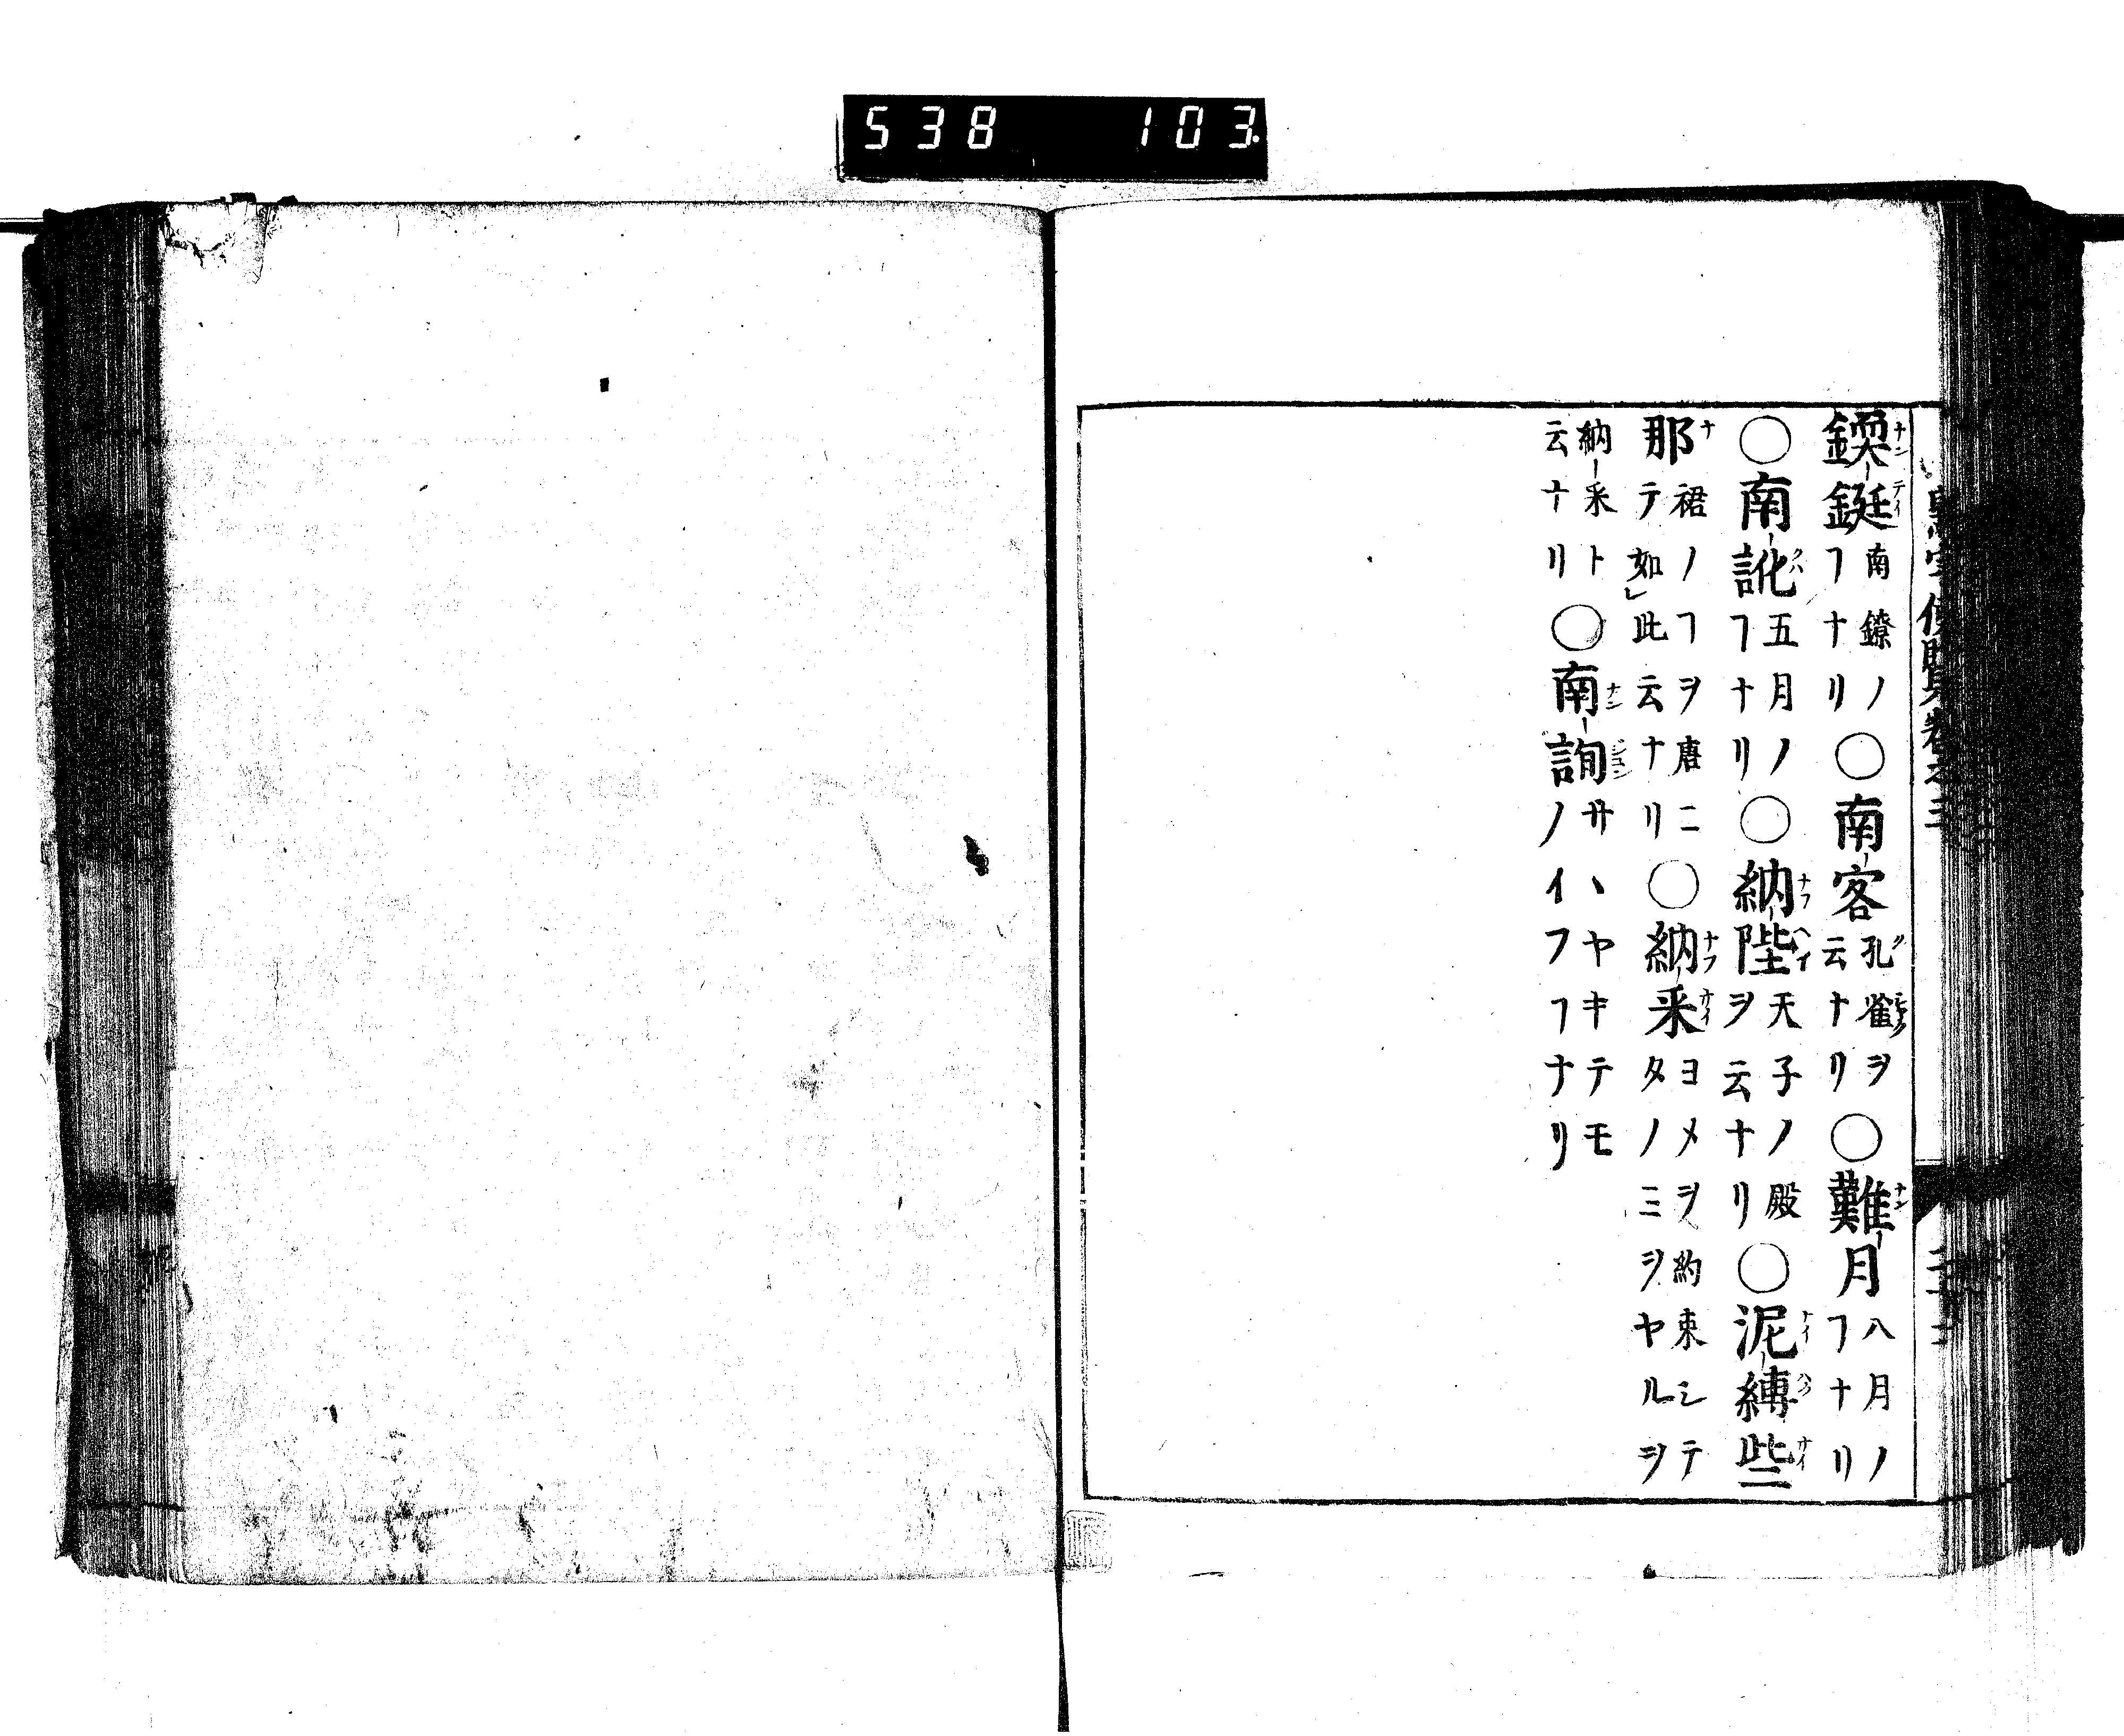 538 103.
卷之三
鋌南鐐ノヿナリ○南客孔雀ヲ云ナリ○難月八月ノヿナリ
○南訛五月ノヿナリ○納陛天子ノ殿ヲ云ナリ○泥縛些
那裙ノヿヲ唐ニテ如レ此云ナリ○納采ヨメヲ約束シテタノミヲヤルヲ
納采ト云ナリ○南詢サヽヤキテモノイフヿナリ